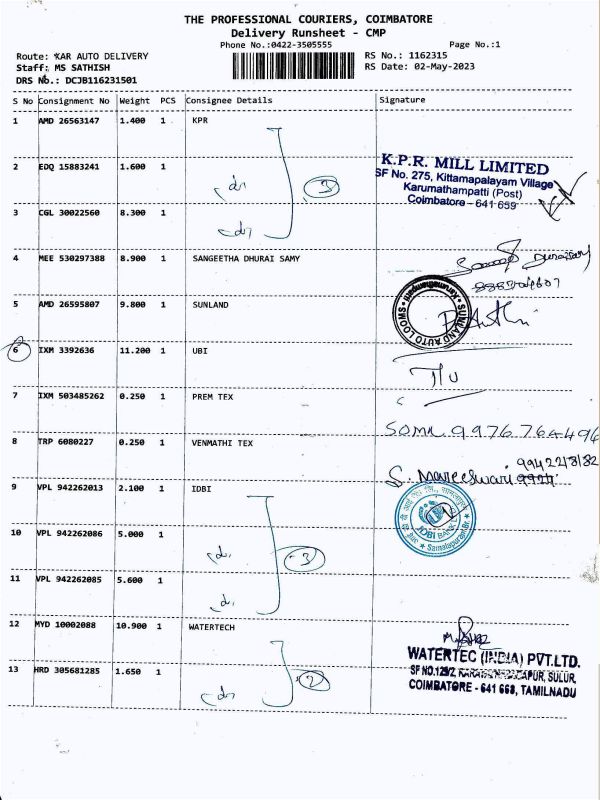 THE PROFESSIONAL COURIERS, COIMBATORE
Delivery Runsheet - CMP
Phone No.:0422-3505555 Page No.:1
Route: KAR AUTO DELIVERY RS No.: 1162315
Staff: MS SATHISH RS Date: 02-May-2023
DRS No.: DCJB116231501
S No Consignment No Weight PCS Consignee Details Signature
1 AMD 26563147 1.400 1 KPR
2 EDQ 15883241 1.600 1
3
K.P.R. MILL LIMITED
SF No. 275, Kittamapalayam Village
Karumathampatti (Post)
Coimbatore - 641 659
3 CGL 30022560 8.300 1
4 MEE 530297388 8.900 1 SANGEETHA DHURAI SAMY
5 AMD 26595807 9.800 1 SUNLAND
SUNLAND AUTO LOOMS
6 IXM 3392636 11.200 1 UBI
7 IXM 503485262 0.250 1 PREM TEX
9976764496
8 TRP 6080227 0.250 1 VENMATHI TEX
S. Mareeswari
9 VPL 942262013 2.100 1 IDBI
IDBI BANK LTD
Samalapuram Br.
10 VPL 942262086 5.000 1
3
11 VPL 942262085 5.600 1
12 MYD 10002088 10.900 1 WATERTECH
WATERTEC (INDIA) PVT.LTD.
COIMBATORE - 641 668, TAMILNADU
13 HRD 305681285 1.650 1
2